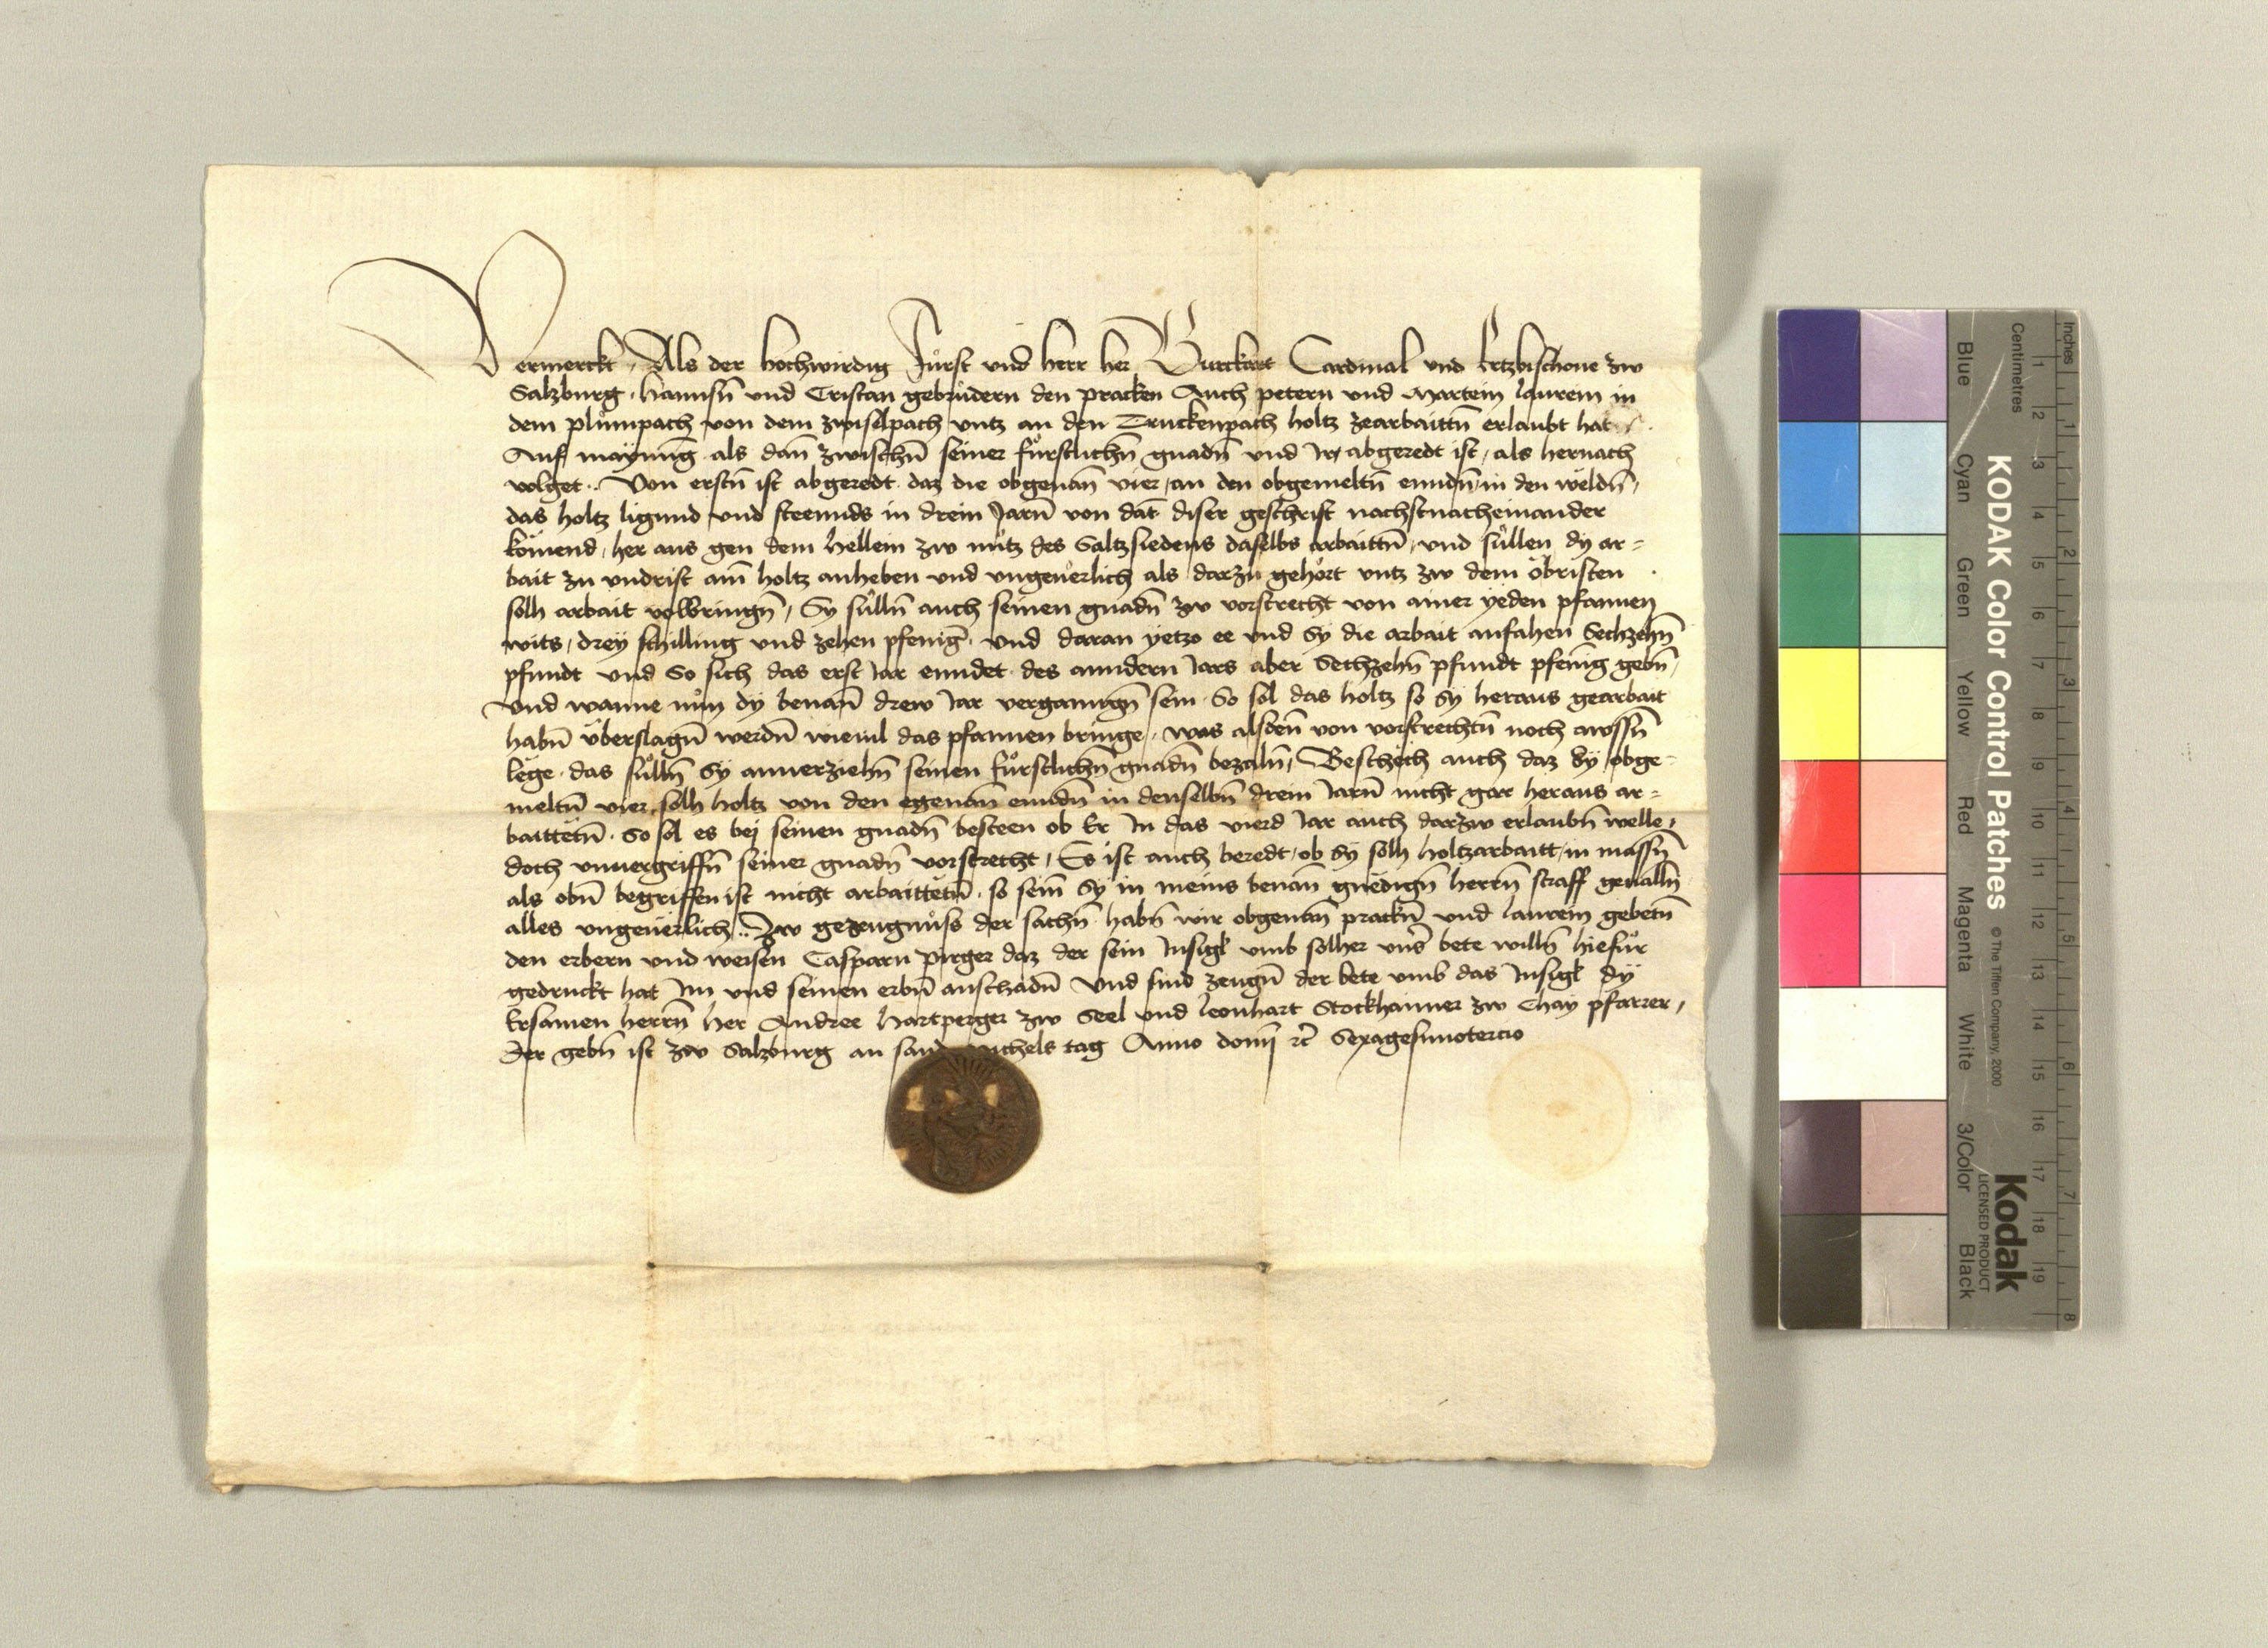 Vermerckt Als der hochwirdig Fürst vnd herr her Burckart Cardinal vnd Ertzbischoue zw
Salzburg, hannsn̄ vnd Cristan gebrüdern den pracken Auch petern vnd Martein Laurein in
dem plüempach von dem zwiselpach vntz an den Truckenpach holtz zearbaittn̄ erlaubt hat
Auf maynung als dan̄ zwischn̄ seiner fürstlichn̄ gnadn̄ vnd In abgeredt ist, als hernach
volget. Von erstn̄ ist abgeredt daz die obgenan̄ vier, an den obgemeltn̄ ennden̄ in den weldn̄,
das holtz ligund vnd steennds in drein Jarn̄ von dat diser geschrift nachstnacheinander
komend, her aus gen dem hellein zw nutz des Saltzsiedens daselbs arbaittn̄, vnd süllen dy ar=
bait zu vndrist am̄ holtz anheben vnd vngeuerlich als darzu gehört vntz zw dem öbristen
solh arbait volbringn̄, Sy sülln̄ auch seinen gnadn̄ zw vorstrecht von ainer yeden pfannen
wits, drey schilling vnd zehen pfeniḡ. vnd daran yetzo ee vnd Sy die arbait anfahen Sechzehn̄
pfundt vnd So sich das erst Jar enndet des anndern Jars aber Sechzehn̄ pfundt pfenig gebn̄,
Vnd wanne nün dy benan̄ drew Jar verganngn̄ sein So sol das holtz so Sy heraus gearbait
habn̄ überslagn̄ werdn̄ wieuil das pfannen bringe, was alsden̄ von vorstrechtn̄ noch awssn̄
lege. das sülln̄ Sy anuerziehn̄ seinen fürstlichn̄ gnadn̄ bezaln̄, Beschech auch daz dy obge=
meltn̄ vier solh holtz von den egenan̄ enndn̄ in denselbn̄ drein Jarn̄ nicht gar heraus ar=
baittetn̄. So sol es bej seinen gnadn̄ besteen ob Er In das vierd Jar auch darzw erlaubn̄ welle,
doch vnuergriffn̄ seiner gnadn̄ vorstrecht, Es ist auch beredt, ob Sy solh holtzarbaitt, in massn̄
als obn̄ begriffen ist nicht arbaittetn̄. so sein̄ Sy in meins benan̄ gnedign̄ herrn̄ straff geualln̄
alles vngeuerlich.. Zw gezeugnüss der sachn̄ habn̄ wir obgenan̄ prackn̄ vnd Laurein gebetn̄
den erbern vnd weisen Casparn pirger daz der sein Insigl vmb solher vnser bete willn̄ hiefür
gedruckt hat Im vnd seinen erbn̄ anschadn̄ Vnd sind zeugn̄ der bete vmb das Insigl dy
Ersamen herrn̄ her Andree hartperger zw Seel vnd Leonhart Stockhaimer zw Chay pfarrer,
Der gebn̄ ist zw Salzburg an sand michels tag Anno domī rc̄ Sexagesimotercio
KODAK Color Control Patches
© The Tiffen Company, 2000
Kodak
LICENSED PRODUCT
Blue Cyan Green Yellow Red Magenta White 3/Color Black
Inches
1 2 3 4 5 6 7 8
Centimetres
1 2 3 4 5 6 7 8 9 10 11 12 13 14 15 16 17 18 19